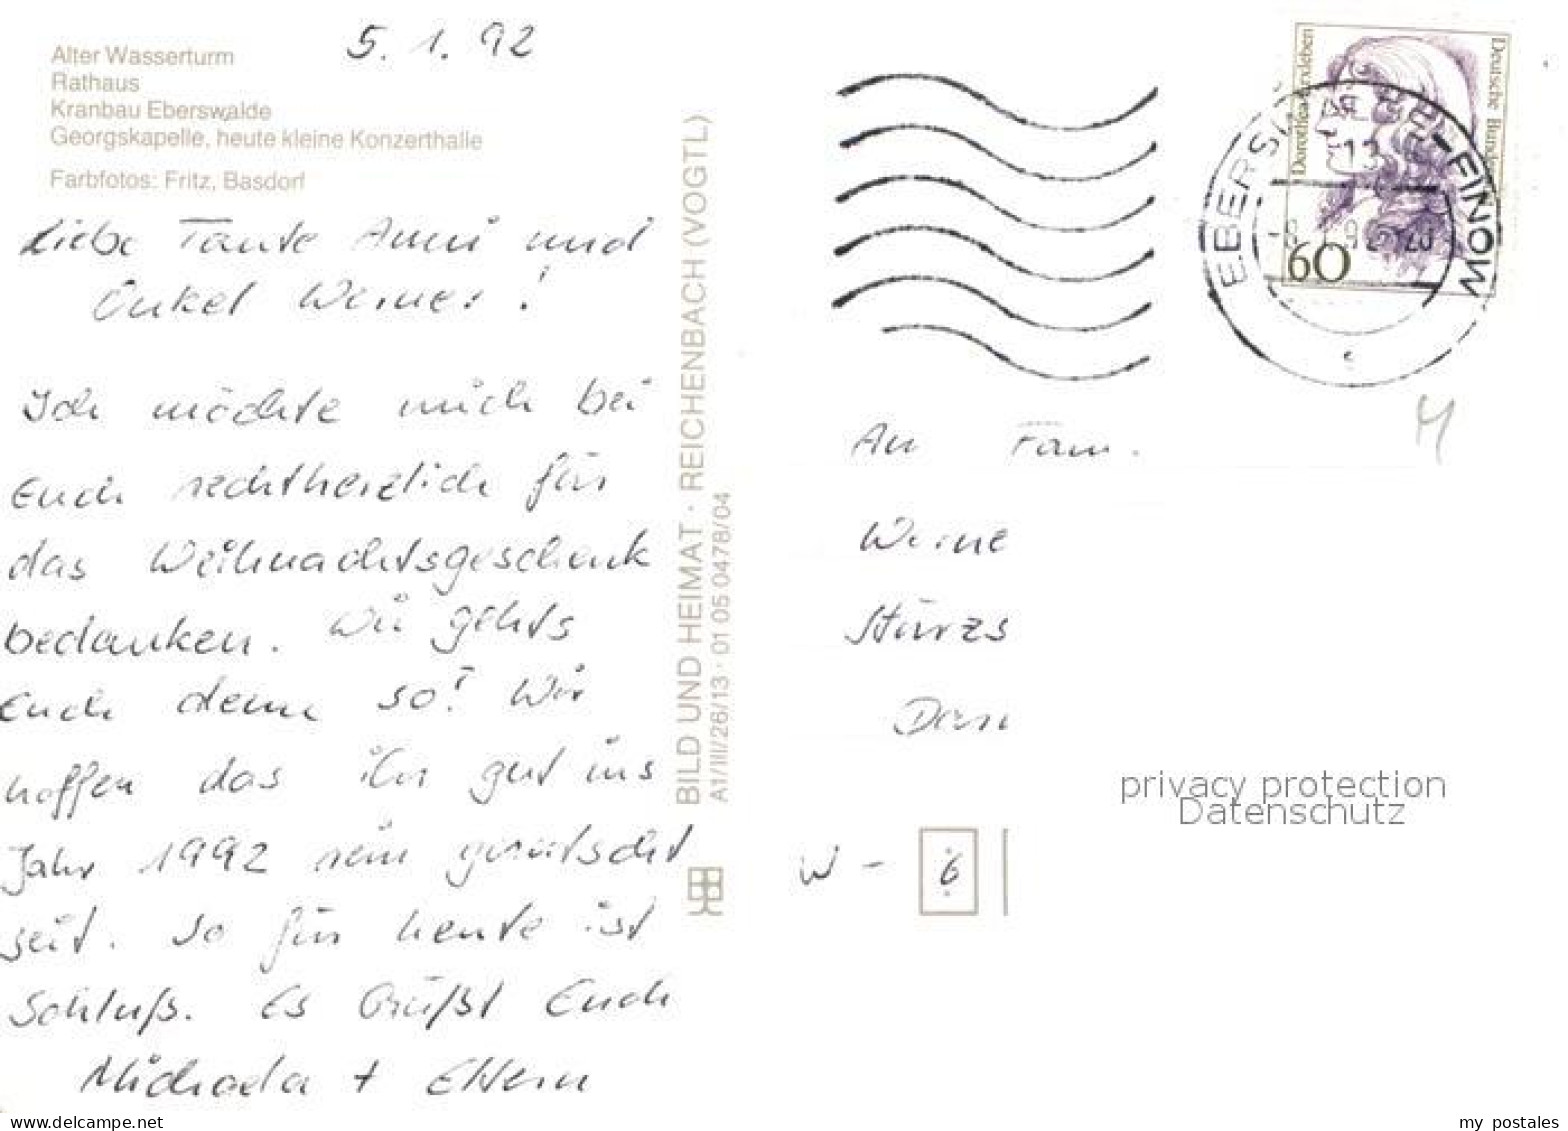 5.1.92
Alter Wasserturm
Rathaus
Kranbau Eberswalde
Georgskapelle, heute kleine Konzerthalle
Farbfotos: Fritz, Basdorf
Liebe Tante Anni und
Onkel Werner!
Ich möchte mich bei
Euch rechtherzlich für
das Weihnachtsgeschenk
bedanken. Wie gehts
Euch denn so? Wir
hoffen das ihr gut ins
Jahr 1992 rein gerutscht
seit. So für heute ist
Schluß. Es Grüßt Euch
Michaela + Eltern
BILD UND HEIMAT · REICHENBACH (VOGTL)
A1/III/26/13 · 01 05 0478/04
Deutsche Bund
Dorothea Erxleben
60
EBERSWALDE-FINOW
An Fam.
Werne
Stürzs
W - 6
privacy protection
Datenschutz
www.delcampe.net
my_postales